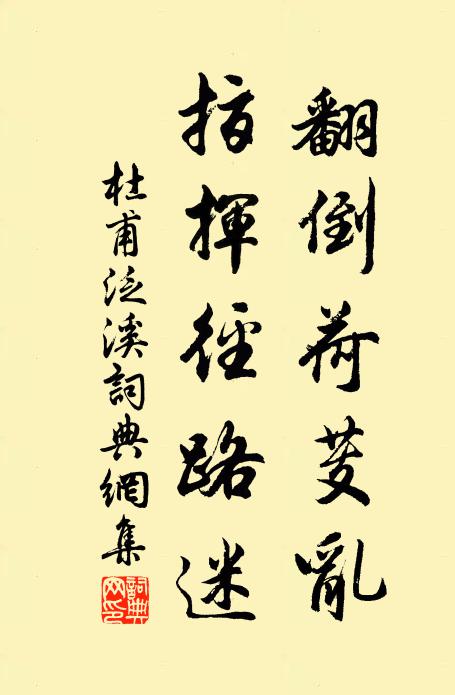 翻倒荷芰亂
指揮徑路迷
杜甫泛溪詞典網集
詞典網印